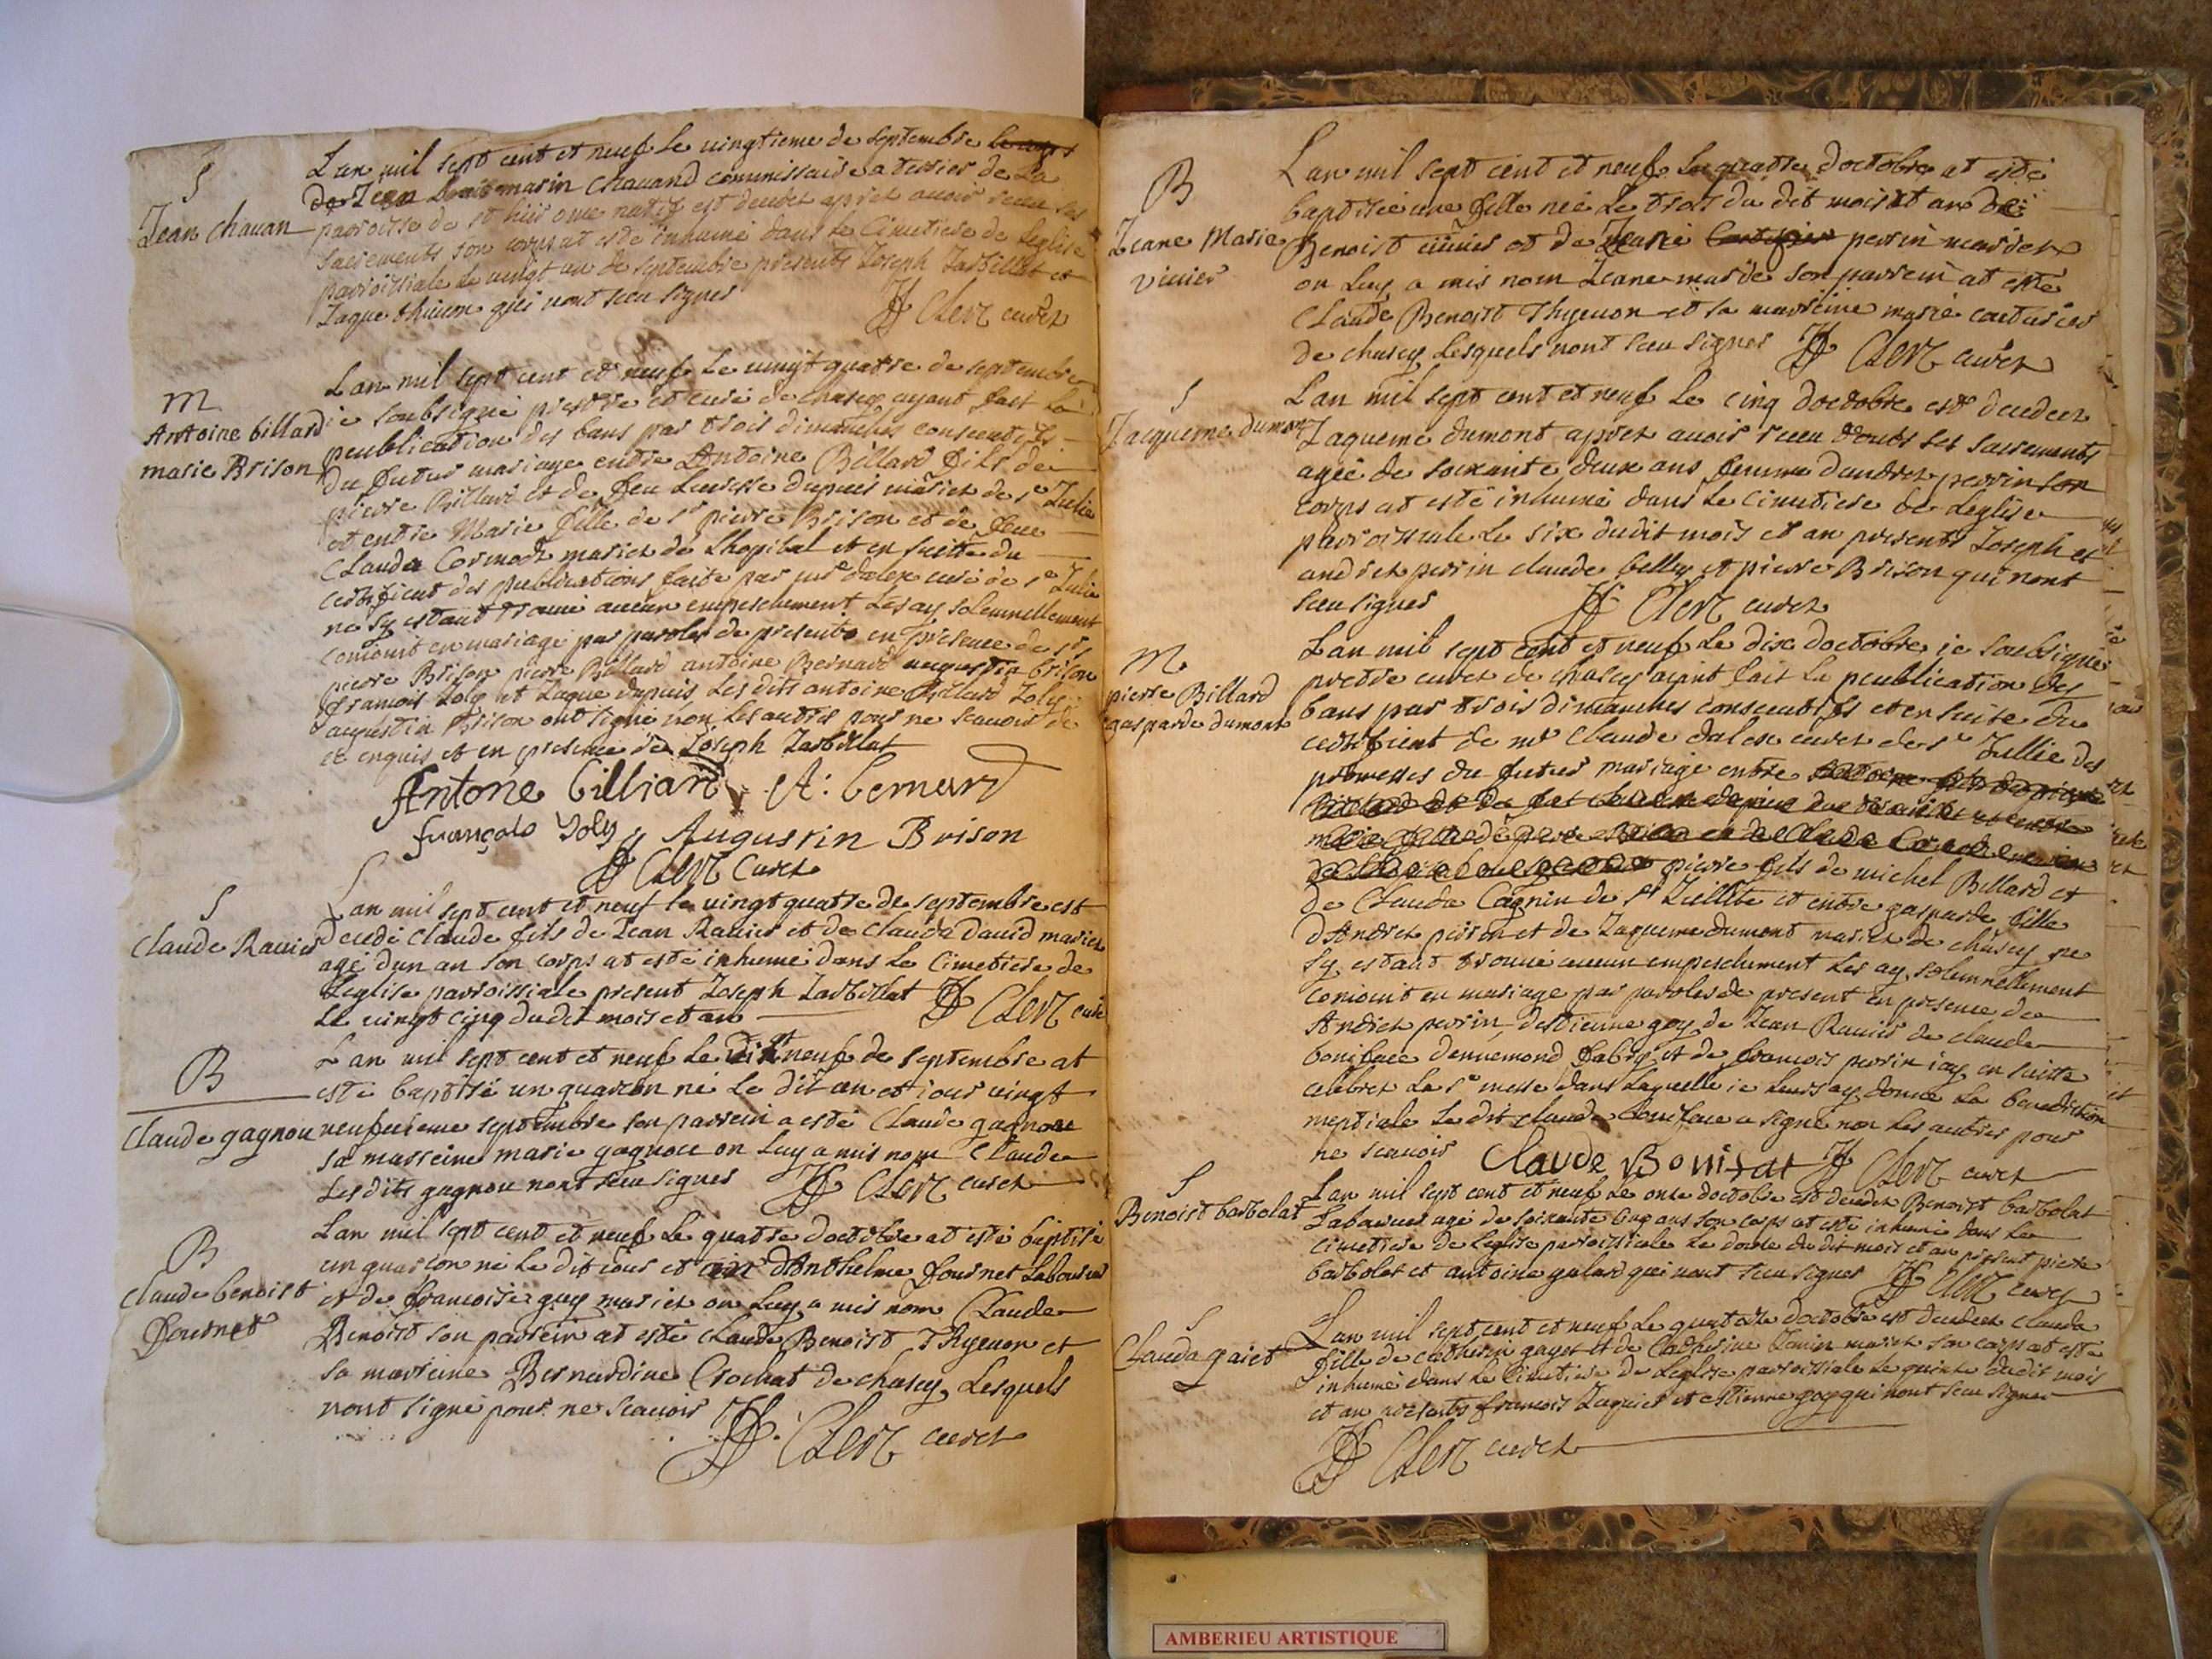 S
Jean chauan
Lan mil sept cent et neuf le vingtieme de septembre
marin chauand commissaire a terrier de la
paroisse de st est decedez apres avoir receu ses
sacrements son corps at esté inhumé dans le Cimetiere de leglise
parroissiale le vingt un de septembre presents Joseph Jarbillet et
Jaque thieuon qui nont sceu signer
Clerc curez
M
Antoine billard
marie Brison
Lan mil sept cent et neuf le vingt quatre de septembre
ie soubsigné prestre et curé de chasey ayant fait la
peublication des bans par trois dimanches consecutifs
du futur mariage entre Antoine Billard fils de
pierre Billard et de feu dupuis mariez de ste Julie
et entre Marie fille de sr pierre Brison et de feue
Clauda Cormoz mariez de Lhopital et en suitte du
certificat des publications faite par mre dalex curé de ste Julie
ne sy estant trouué aucun empeschement les ay solemnellement
conioint en mariage par paroles de presents en presence de srs
pierre Brison pierre Billard antoine Bernard augustin brison
francois Joly et Jaque dupuis les dits antoine Billard Joly
augustin Brison ont signé non les autres pour ne scauoir de
ce enquis et en presence de Joseph Jarbillet
Antone billiard A: bernard
françois Joly Augustin Brison
Clerc Curez
S
Claude Rauier
Lan mil sept cent et neuf le vingt quatre de septembre est
decedé Claude fils de Jean Rauier et de Clauda Dauid mariez
agé dun an son corps at esté inhumé dans le Cimetiere de
leglise parroissiale present Joseph Jarbillet
le vingt cinq dudit mois et an
Clerc curé
B
Claude gagnou
Lan mil sept cent et neuf le neuf de septembre at
esté baptisé un guarcon né le dit an et iour vingt
neufuieme septembre son parrein a esté Claude gagnou
sa marreine marie gagnou on luy a mis nom Claude
lesdits gagnou nont sceu signer Clerc curez
B
Claude benoist
fournet
Lan mil sept cent et neuf le quatre doctobre at esté baptisé
un guarcon né le dit iour et an dAnthelme fournet laboureur
et de francoise guy mariez on luy a mis nom Claude
Benoist son parrein at esté Claude Benoist Thyeuon et
sa marreine Bernardine Crochat de chasey lesquels
nont signé pour ne scauoir
Clerc curez
B
Jeane Marie
Viuier
Lan mil sept cent et neuf le quatre doctobre at esté
baptisée une fille née le trois du dit mois et an de
Benoist uiuier et de Marie perrin mariez
on luy a mis nom Jeane marie son parrein at esté
Claude Benoist Thyeuon et sa marreine marie
de chasey lesquels nont sceu signer Clerc curez
S
Jacqueme dumont
Lan mil sept cent et neuf le cinq doctobre est decedez
Jaqueme dumont apres auoir receu touts ses sacrements
agée de soixante deux ans femme dandrez perrin son
corps at esté inhumé dans le cimetiere de leglise
parroissiale le six dudit mois et an presents Joseph et
andrez perrin claude belley et pierre Brison qui nont
sceu signer Clerc curez
M
pierre Billard
gasparde dumont
Lan mil sept cent et neuf le dix doctobre ie soubsigné
prestre curez de chasey ayant fait la peublication des
bans par trois dimanches consecutifs et en suite du
certificat de mre Claude dalex curez de ste Jullie des
promesses du futur mariage entre
pierre fils de michel Billard et
de Clauda Cagnin de ste Jullie et entre gasparde fille
dAndrez perrin et de Jaqueme dumont mariez de chasey ne
sy estant trouué aucun empeschement les ay solemnellement
conioint en mariage par paroles de present en presence de
Andrez perrin destienne goy de Jean Rauier de claude
boniface dennemond fabry et de francois perrin iay en suitte
celebrez la ste messe dans laquelle ie leurs ay donné la benediction
nuptiale le dit claude Boniface a signé non les autres pour
ne scauoir Claude Bonifat Clerc curez
S
Benoist barbolat
Lan mil sept cent et neuf le onze doctobre est decedez Benoist barbolat
agé de soixante cinq ans son corps at esté inhumé dans le
cimetiere de leglise parroissiale le douze du dit mois et an present pierre
barbolat et antoine qui nont sceu signer Clerc curez
S
Clauda gaiet
Lan mil sept cent et neuf le quatorze doctobre est decedez Clauda
fille de gayet et de Catherine mariez son corps at esté
inhumé dans le Cimetiere de leglise parroissiale le quinze dudit mois
et an presents francois et estienne goy qui nont sceu signer
Clerc curez
AMBERIEU ARTISTIQUE